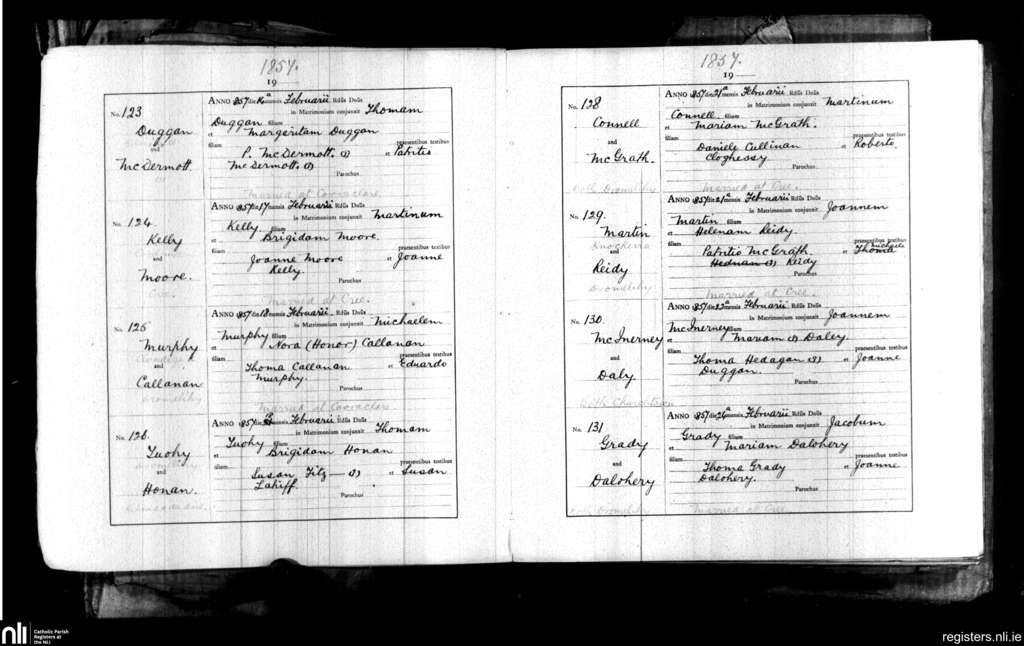 1857.
19
No. 123
Duggan
and
McDermott.
ANNO 1857 die 16ª mensis Februarii Rdſſs Dnſſs
in Matrimonium conjunxit Thomam
Duggan filium
et Margeritam Duggan
filiam praesentibus testibus
P. McDermott. (?) et Patritio
McDermott. (?)
Parochus
Married at Cooraclare.
No. 124.
Kelly
and
Moore.
Cree.
ANNO 1857 die 17 mensis Februarii Rdſſs Dnſſs
in Matrimonium conjunxit Martinum
Kelly filium
et Brigidam Moore.
filiam praesentibus testibus
Joanne Moore et Joanne
Kelly.
Parochus
Married at Cree.
No. 125
Murphy
and
Callanan
Dromelihy
ANNO 1857 die 18 mensis Februarii Rdſſs Dnſſs
in Matrimonium conjunxit Michaelem
Murphy filium
et Nora (Honor) Callanan
filiam praesentibus testibus
Thoma Callanan et Eduardo
Murphy.
Parochus
Married at Cooraclare
No. 126.
Tuohy
and
Honan.
ANNO 1857 die mensis Februarii Rdſſs Dnſſs
in Matrimonium conjunxit Thomam
Tuohy filium
et Brigidam Honan
filiam praesentibus testibus
Susan Fitz — (?) et Susan
Lahiff.
Parochus
1857.
19
No. 128
Connell
and
McGrath.
Both Dromelihy
ANNO 1857 die 21ª mensis Februarii Rdſſs Dnſſs
in Matrimonium conjunxit Martinum
Connell filium
et Mariam McGrath.
filiam praesentibus testibus
Daniele Cullinan et Roberto
Cloghessy
Parochus
Married at Cree.
No. 129.
Martin
Knockerra
and
Reidy
Dromelihy
ANNO 1857 die 21ª mensis Februarii Rdſſs Dnſſs
in Matrimonium conjunxit Joannem
Martin filium
et Helenam Reidy.
filiam praesentibus testibus
Patritio McGrath. et Thoma Michaele
Hednan (?) Reidy
Parochus
Married at Cree.
No. 130.
McInerney
and
Daly.
ANNO 1857 die 22ª mensis Februarii Rdſſs Dnſſs
in Matrimonium conjunxit Joannem
McInerney filium
et Mariam (?) Daley.
filiam praesentibus testibus
Thoma Hedagan (?) et Joanne
Duggan.
Parochus
Both Churchtown
No. 131
Grady
and
Dalohery
Both Dromelihy
ANNO 1857 die 26ª mensis Februarii Rdſſs Dnſſs
in Matrimonium conjunxit Jacobum
Grady filium
et Mariam Dalohery
filiam praesentibus testibus
Thoma Grady et Joanne
Dalohery.
Parochus
Married at Cree.
nli
Catholic Parish
Registers at
the NLI
registers.nli.ie